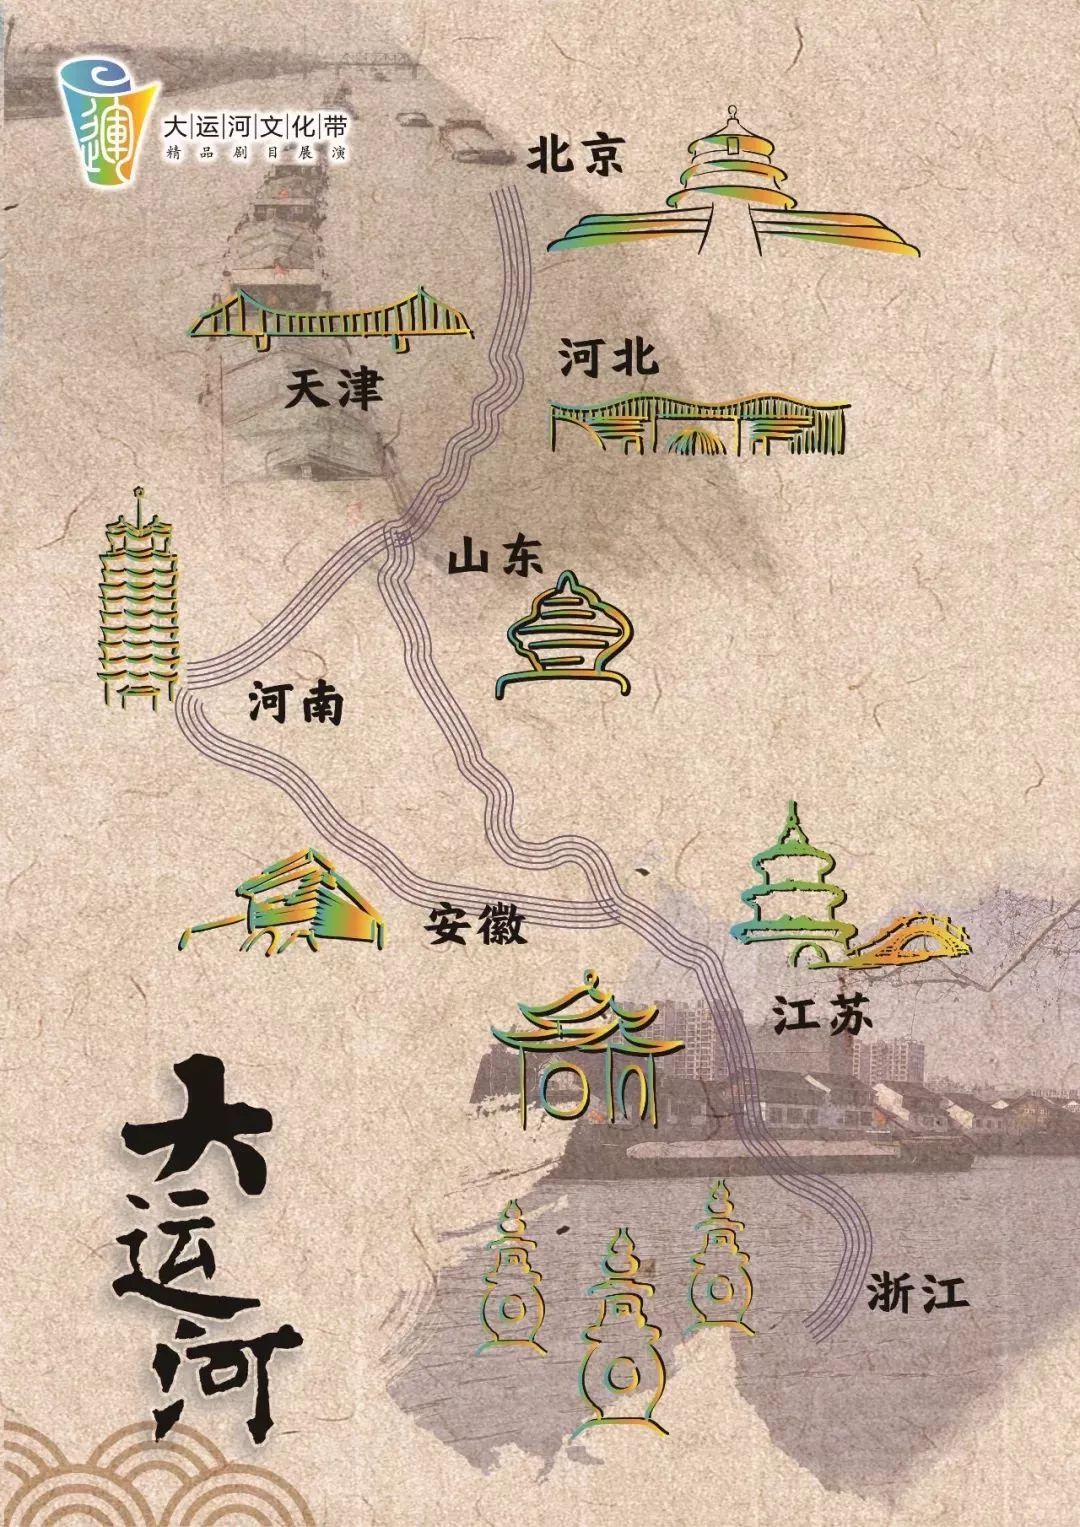 運
大运河文化带
精品剧目展演
北京
天津
河北
山东
河南
安徽
江苏
浙江
大运河